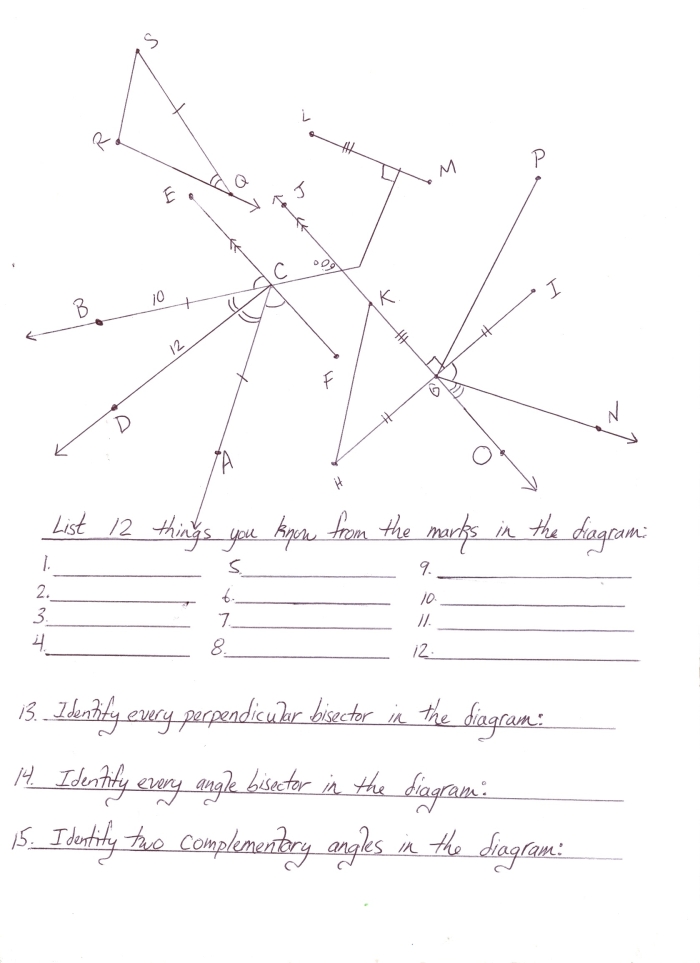 S
R
Q
E
J
L
M
P
C
B
10
12
D
A
F
K
I
G
N
O
H
List 12 things you know from the marks in the diagram:
1. 5. 9.
2. 6. 10.
3. 7. 11.
4. 8. 12.
13. Identify every perpendicular bisector in the diagram:
14. Identify every angle bisector in the diagram:
15. Identify two complementary angles in the diagram: